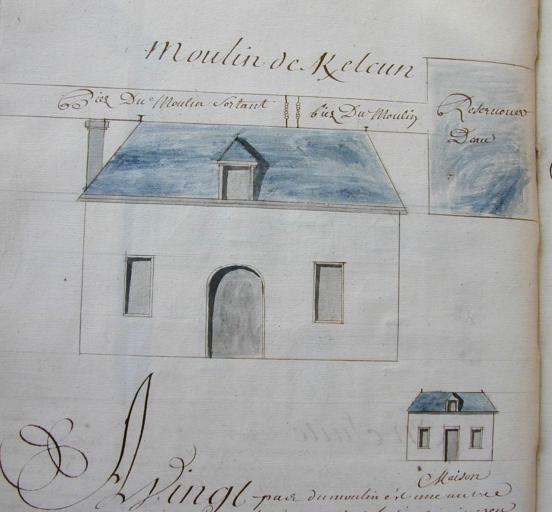 Moulin de Kelcun
Biez Du Moulin Sortant
biez Du Moulin
Reservoire
Deau
Maison
A vingt pas du moulin est une autre